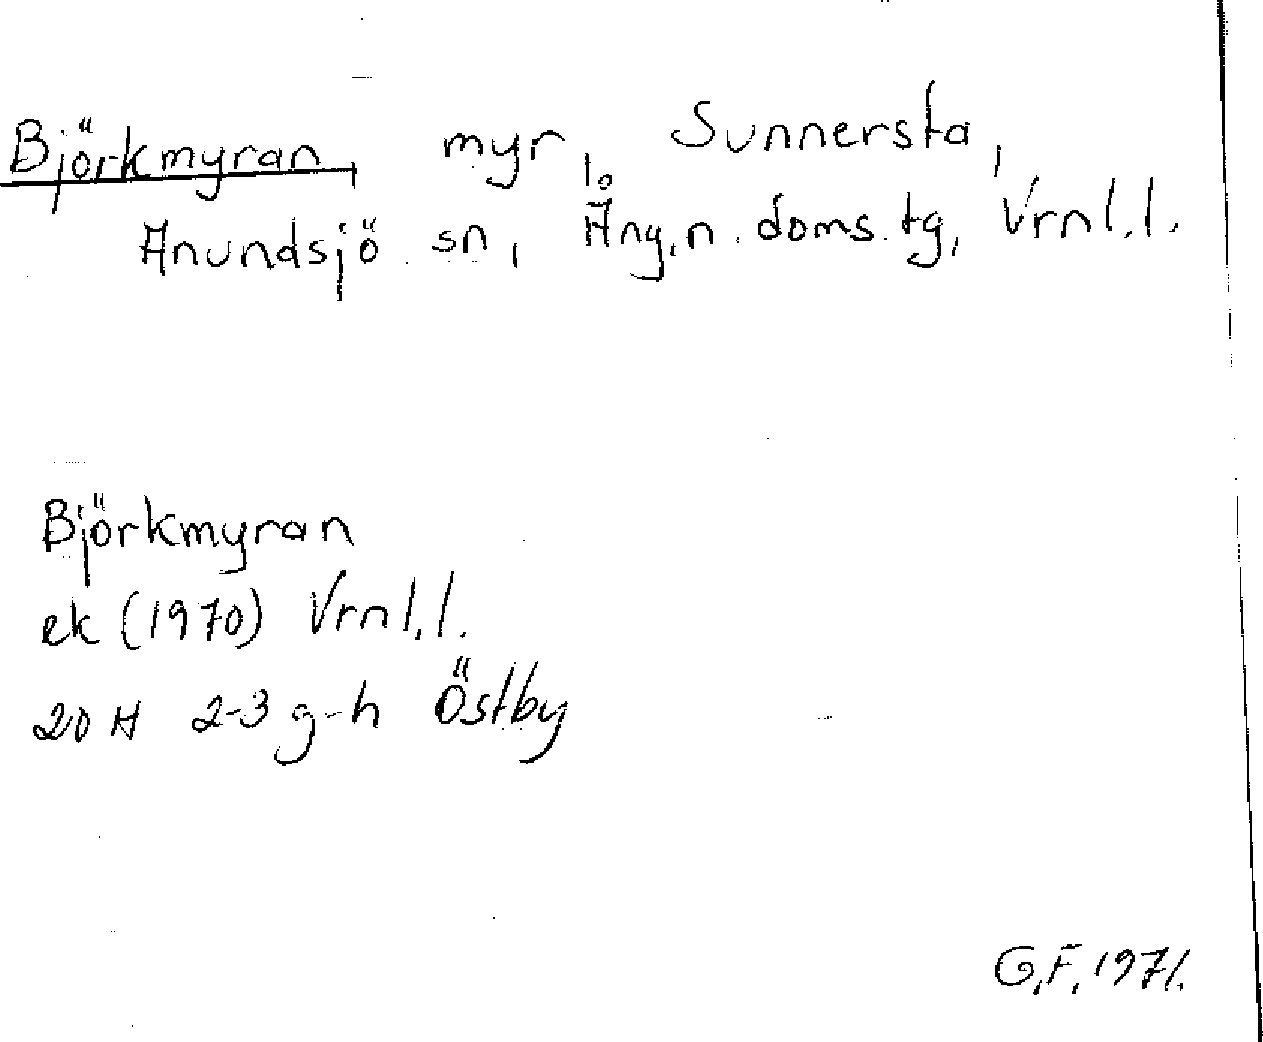 Björkmyran, myr, Sunnersta,
Anundsjö sn, Ång.n. doms.tg, Vrnl.l.
Björkmyran
ek (1970) Vrnl.l.
20 H 2-3 g-h Östby
G.F. 1971.